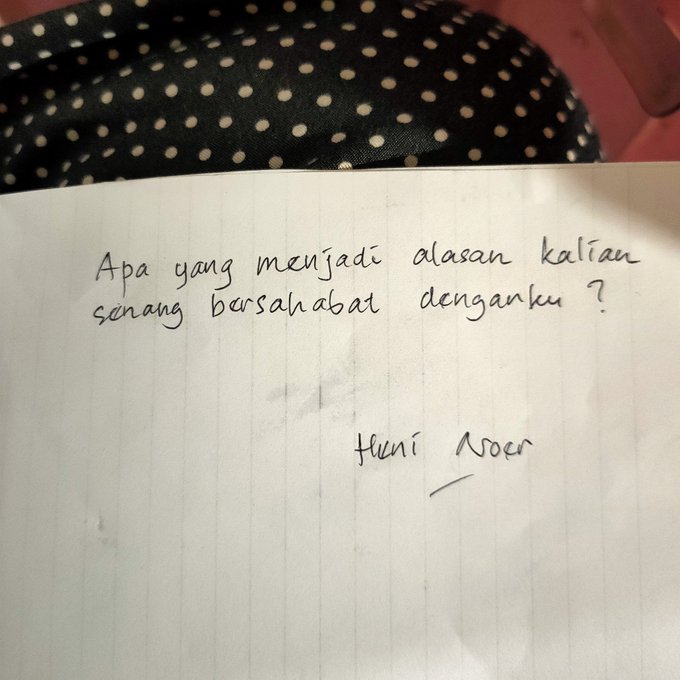 Apa yang menjadi alasan kalian
senang bersahabat denganku ?
Heni Noer